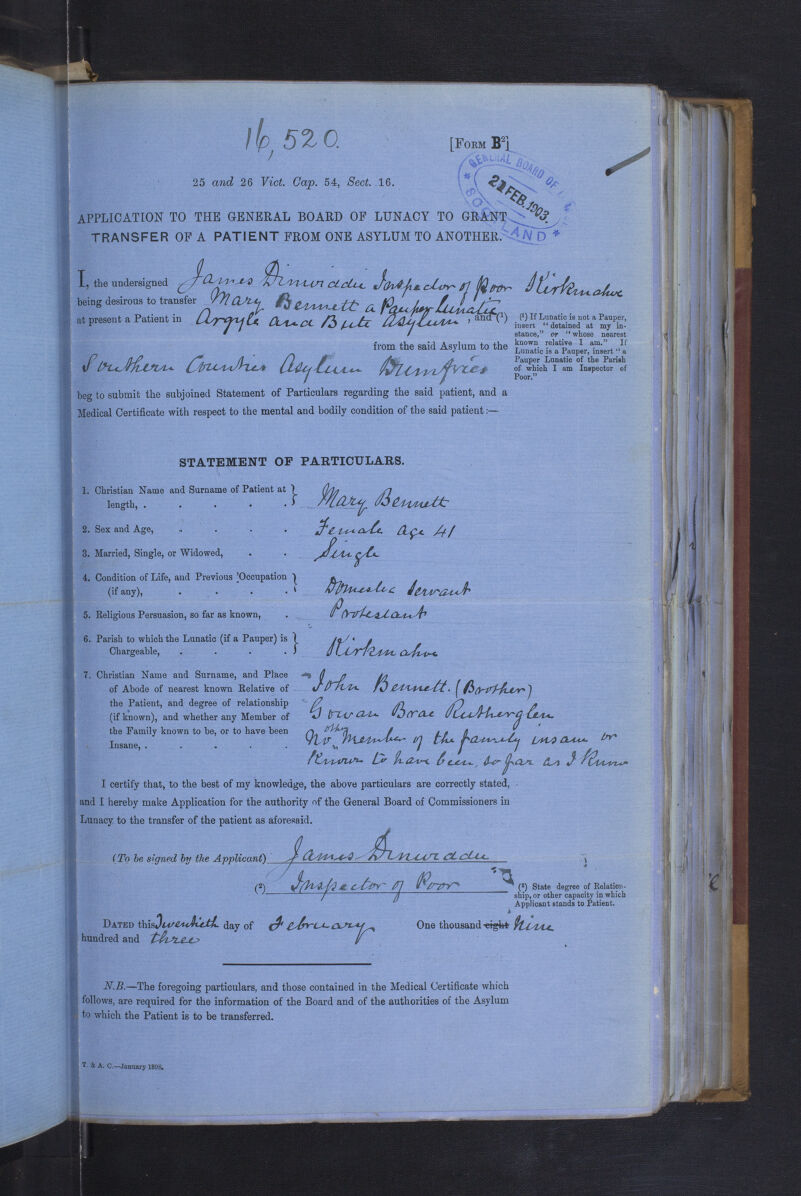 16,520.
[FORM B²]
GENERAL BOARD OF
21 FEB. 1903.
SCOTLAND
25 and 26 Vict. Cap. 54, Sect. 16.
APPLICATION TO THE GENERAL BOARD OF LUNACY TO GRANT
TRANSFER OF A PATIENT FROM ONE ASYLUM TO ANOTHER.
I, the undersigned James Dinwiddie Inspector of Poor Kirkmahoe
being desirous to transfer Mary Bennett a Pauper Lunatic
at present a Patient in Argyle and Bute Asylum, and (¹)
from the said Asylum to the
Southern Counties Asylum Dumfries
beg to submit the subjoined Statement of Particulars regarding the said patient, and a
Medical Certificate with respect to the mental and bodily condition of the said patient:—
(¹) If Lunatic is not a Pauper,
insert "detained at my in-
stance," or "whose nearest
known relative I am." If
Lunatic is a Pauper, insert "a
Pauper Lunatic of the Parish
of which I am Inspector of
Poor."
STATEMENT OF PARTICULARS.
1. Christian Name and Surname of Patient at
length, . . . . . Mary Bennett
2. Sex and Age, . . . . Female age 41
3. Married, Single, or Widowed, . . Single
4. Condition of Life, and Previous Occupation
(if any), . . . . Domestic Servant
5. Religious Persuasion, so far as known, . Protestant
6. Parish to which the Lunatic (if a Pauper) is
Chargeable, . . . . Kirkmahoe
7. Christian Name and Surname, and Place John Bennett. (Brother)
of Abode of nearest known Relative of
the Patient, and degree of relationship Gowan Brae Rutherglen
(if known), and whether any Member of
the Family known to be, or to have been No other Member of the family insane or
Insane, . . . . . . known to have been, so far as I know
I certify that, to the best of my knowledge, the above particulars are correctly stated,
and I hereby make Application for the authority of the General Board of Commissioners in
Lunacy to the transfer of the patient as aforesaid.
(To be signed by the Applicant) James Dinwiddie
(²) Inspector of Poor
(²) State degree of Relation-
ship, or other capacity in which
Applicant stands to Patient.
DATED this Twentieth day of February One thousand eight Nine
hundred and three
N.B.—The foregoing particulars, and those contained in the Medical Certificate which
follows, are required for the information of the Board and of the authorities of the Asylum
to which the Patient is to be transferred.
T. & A. C.—January 1898.